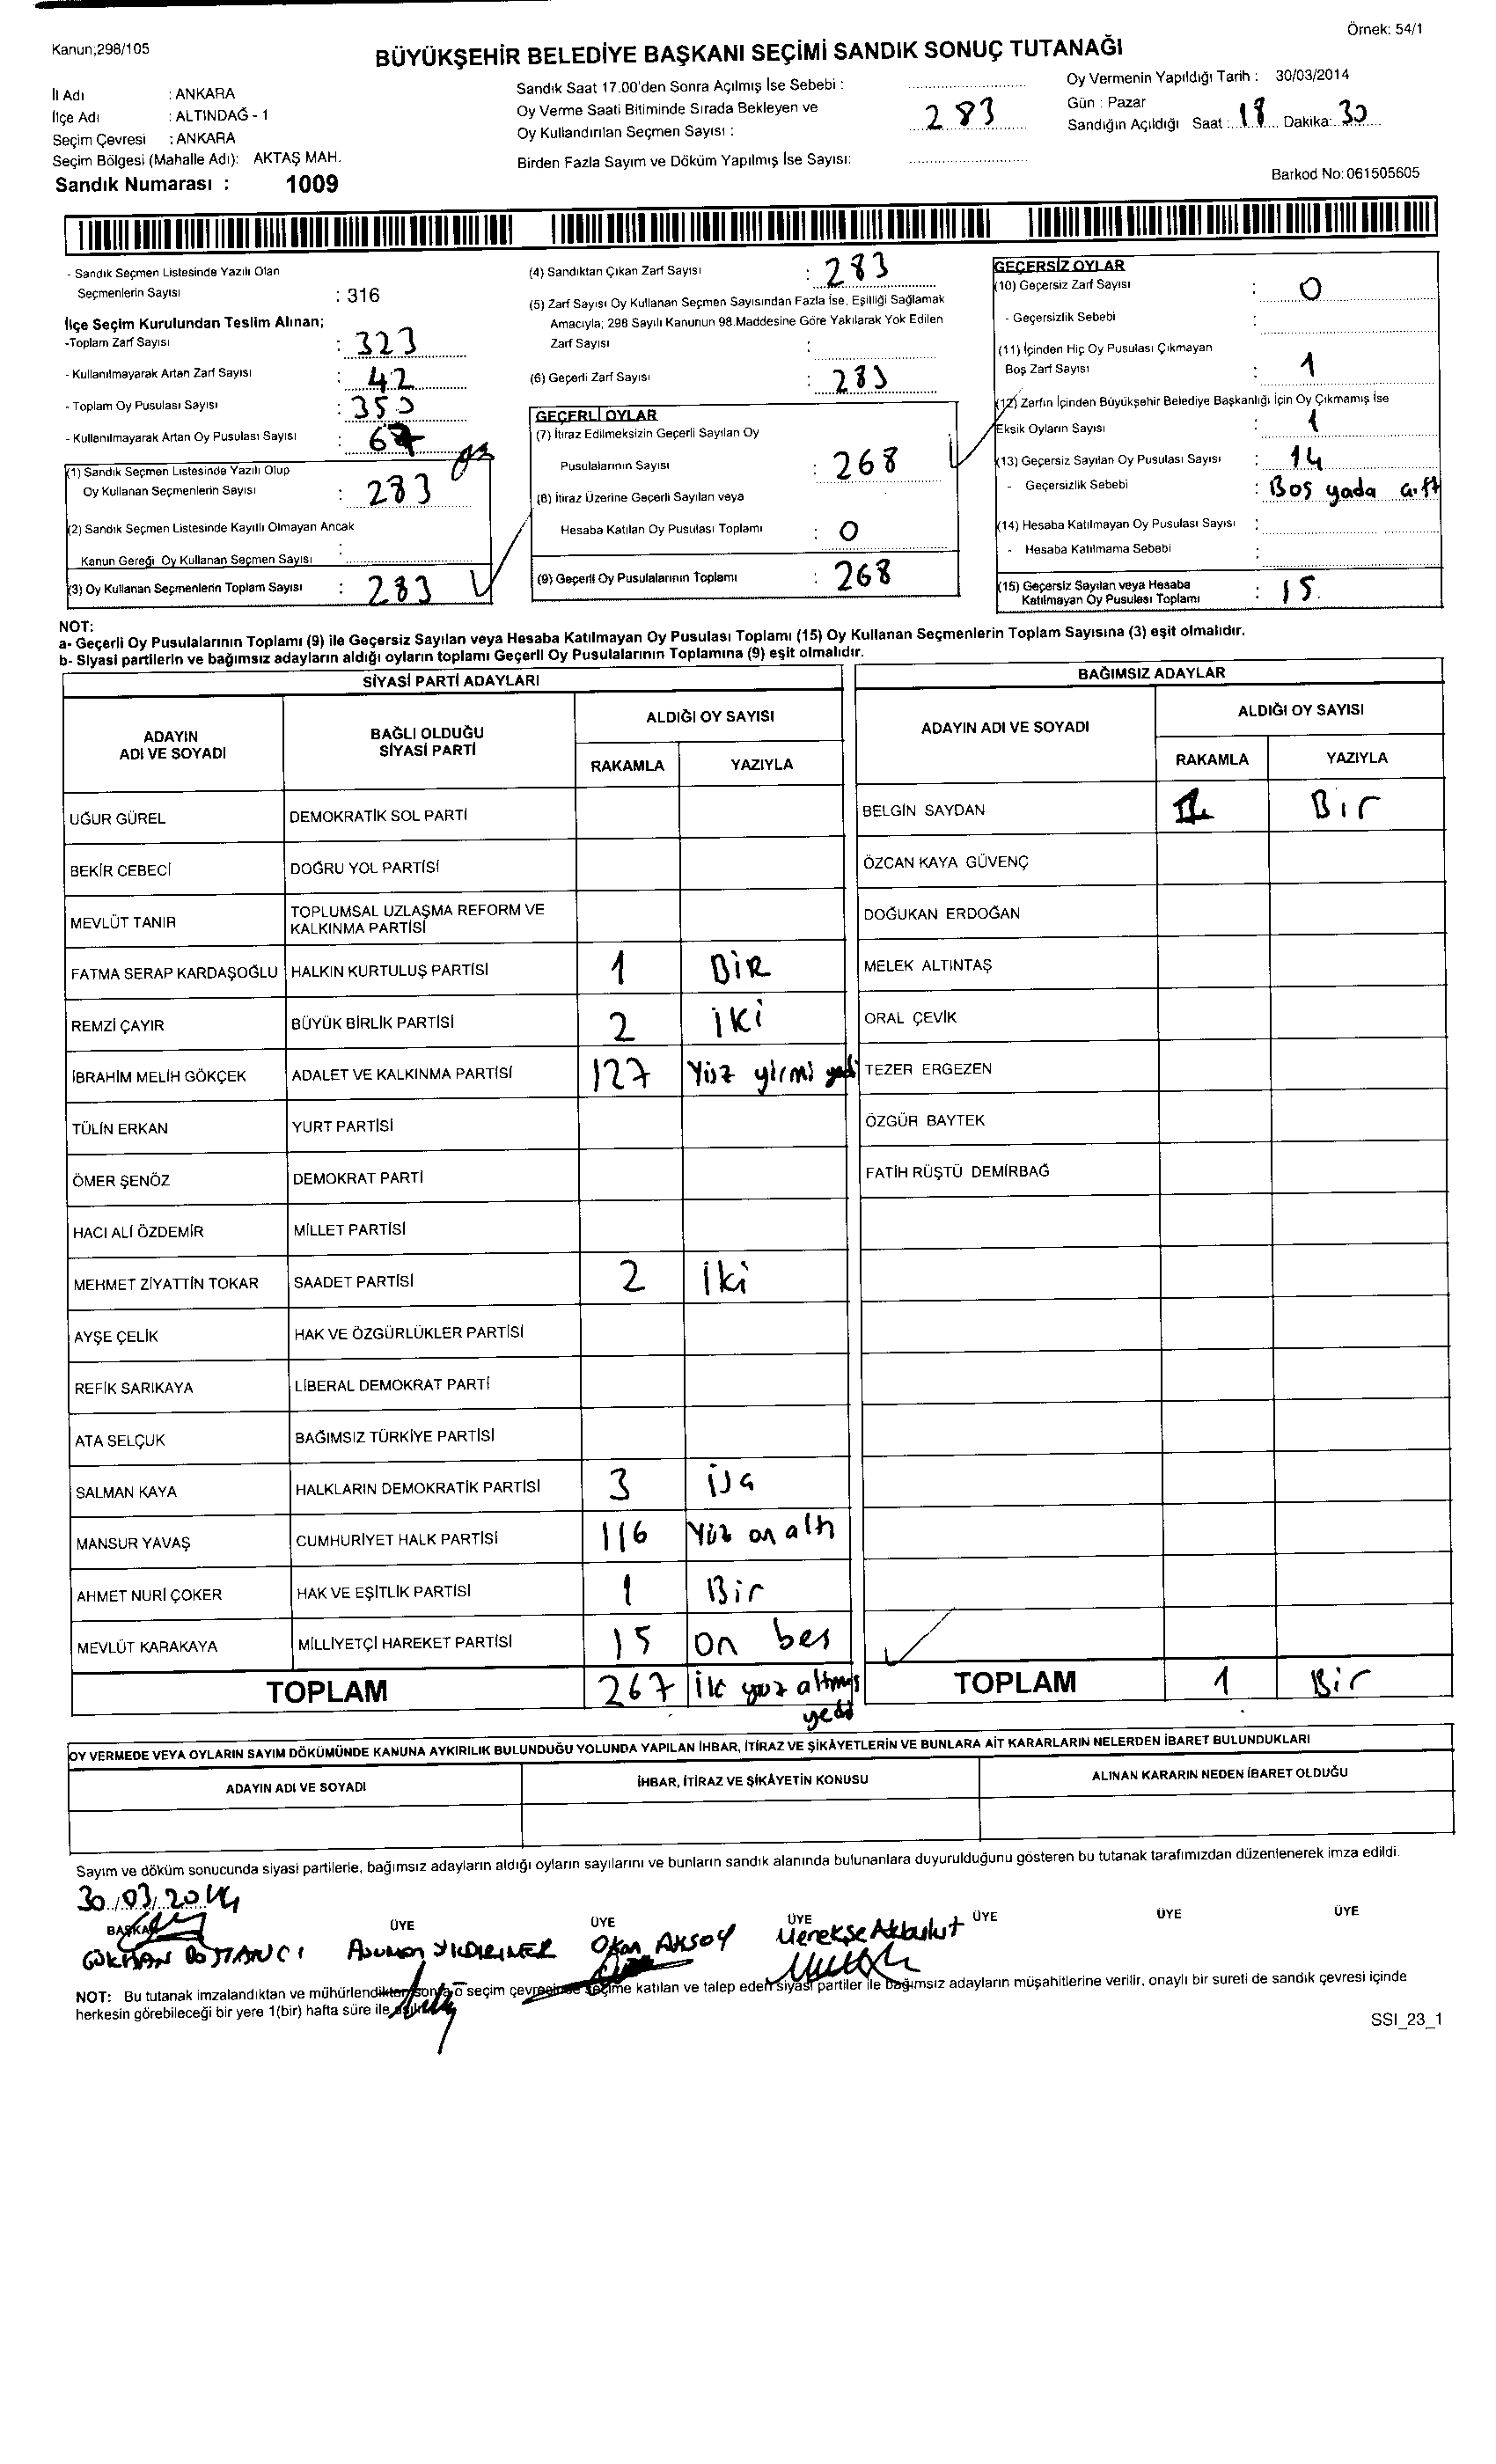 Örnek: 54/1
Kanun;298/105
BÜYÜKŞEHİR BELEDİYE BAŞKANI SEÇİMİ SANDIK SONUÇ TUTANAĞI
İl Adı : ANKARA
İlçe Adı : ALTINDAĞ - 1
Seçim Çevresi : ANKARA
Seçim Bölgesi (Mahalle Adı): AKTAŞ MAH.
Sandık Numarası : 1009
Sandık Saat 17.00'den Sonra Açılmış İse Sebebi :
Oy Verme Saati Bitiminde Sırada Bekleyen ve
Oy Kullandırılan Seçmen Sayısı : 283
Birden Fazla Sayım ve Döküm Yapılmış İse Sayısı:
Oy Vermenin Yapıldığı Tarih : 30/03/2014
Gün : Pazar
Sandığın Açıldığı Saat : 18 Dakika: 30
Barkod No: 061505605
- Sandık Seçmen Listesinde Yazılı Olan
Seçmenlerin Sayısı : 316
İlçe Seçim Kurulundan Teslim Alınan;
-Toplam Zarf Sayısı : 323
- Kullanılmayarak Artan Zarf Sayısı : 42
- Toplam Oy Pusulası Sayısı : 350
- Kullanılmayarak Artan Oy Pusulası Sayısı : 67
(1) Sandık Seçmen Listesinde Yazılı Olup
Oy Kullanan Seçmenlerin Sayısı : 283
(2) Sandık Seçmen Listesinde Kayıtlı Olmayan Ancak
Kanun Gereği Oy Kullanan Seçmen Sayısı :
(3) Oy Kullanan Seçmenlerin Toplam Sayısı : 283
(4) Sandıktan Çıkan Zarf Sayısı : 283
(5) Zarf Sayısı Oy Kullanan Seçmen Sayısından Fazla İse, Eşitliği Sağlamak
Amacıyla; 298 Sayılı Kanunun 98.Maddesine Göre Yakılarak Yok Edilen
Zarf Sayısı :
(6) Geçerli Zarf Sayısı : 283
GEÇERLİ OYLAR
(7) İtiraz Edilmeksizin Geçerli Sayılan Oy
Pusulalarının Sayısı : 268
(8) İtiraz Üzerine Geçerli Sayılan veya
Hesaba Katılan Oy Pusulası Toplamı : 0
(9) Geçerli Oy Pusulalarının Toplamı : 268
GEÇERSİZ OYLAR
(10) Geçersiz Zarf Sayısı : 0
- Geçersizlik Sebebi :
(11) İçinden Hiç Oy Pusulası Çıkmayan
Boş Zarf Sayısı : 1
(12) Zarfın İçinden Büyükşehir Belediye Başkanlığı İçin Oy Çıkmamış İse
Eksik Oyların Sayısı : 1
(13) Geçersiz Sayılan Oy Pusulası Sayısı : 14
- Geçersizlik Sebebi : Boş yada çift
(14) Hesaba Katılmayan Oy Pusulası Sayısı :
- Hesaba Katılmama Sebebi :
(15) Geçersiz Sayılan veya Hesaba
Katılmayan Oy Pusulası Toplamı : 15
NOT:
a- Geçerli Oy Pusulalarının Toplamı (9) ile Geçersiz Sayılan veya Hesaba Katılmayan Oy Pusulası Toplamı (15) Oy Kullanan Seçmenlerin Toplam Sayısına (3) eşit olmalıdır.
b- Siyasi partilerin ve bağımsız adayların aldığı oyların toplamı Geçerli Oy Pusulalarının Toplamına (9) eşit olmalıdır.
SİYASİ PARTİ ADAYLARI
ADAYIN ADI VE SOYADI
BAĞLI OLDUĞU SİYASİ PARTİ
ALDIĞI OY SAYISI
RAKAMLA YAZIYLA
UĞUR GÜREL DEMOKRATİK SOL PARTİ
BEKİR CEBECİ DOĞRU YOL PARTİSİ
MEVLÜT TANIR TOPLUMSAL UZLAŞMA REFORM VE
KALKINMA PARTİSİ
FATMA SERAP KARDAŞOĞLU HALKIN KURTULUŞ PARTİSİ 1 BİR
REMZİ ÇAYIR BÜYÜK BİRLİK PARTİSİ 2 iki
İBRAHİM MELİH GÖKÇEK ADALET VE KALKINMA PARTİSİ 127 Yüz yirmi yedi
TÜLİN ERKAN YURT PARTİSİ
ÖMER ŞENÖZ DEMOKRAT PARTİ
HACI ALİ ÖZDEMİR MİLLET PARTİSİ
MEHMET ZİYATTİN TOKAR SAADET PARTİSİ 2 iki
AYŞE ÇELİK HAK VE ÖZGÜRLÜKLER PARTİSİ
REFİK SARIKAYA LİBERAL DEMOKRAT PARTİ
ATA SELÇUK BAĞIMSIZ TÜRKİYE PARTİSİ
SALMAN KAYA HALKLARIN DEMOKRATİK PARTİSİ 3
MANSUR YAVAŞ CUMHURİYET HALK PARTİSİ 116 Yüz on altı
AHMET NURİ ÇOKER HAK VE EŞİTLİK PARTİSİ 1 Bir
MEVLÜT KARAKAYA MİLLİYETÇİ HAREKET PARTİSİ 15 on beş
TOPLAM 267 iki yüz altmış
yedi
BAĞIMSIZ ADAYLAR
ADAYIN ADI VE SOYADI
ALDIĞI OY SAYISI
RAKAMLA YAZIYLA
BELGİN SAYDAN 1 Bir
ÖZCAN KAYA GÜVENÇ
DOĞUKAN ERDOĞAN
MELEK ALTINTAŞ
ORAL ÇEVİK
TEZER ERGEZEN
ÖZGÜR BAYTEK
FATİH RÜŞTÜ DEMİRBAĞ
TOPLAM 1 Bir
OY VERMEDE VEYA OYLARIN SAYIM DÖKÜMÜNDE KANUNA AYKIRILIK BULUNDUĞU YOLUNDA YAPILAN İHBAR, İTİRAZ VE ŞİKÂYETLERİN VE BUNLARA AİT KARARLARIN NELERDEN İBARET BULUNDUKLARI
ADAYIN ADI VE SOYADI İHBAR, İTİRAZ VE ŞİKÂYETİN KONUSU ALINAN KARARIN NEDEN İBARET OLDUĞU
Sayım ve döküm sonucunda siyasi partilerle, bağımsız adayların aldığı oyların sayılarını ve bunların sandık alanında bulunanlara duyurulduğunu gösteren bu tutanak tarafımızdan düzenlenerek imza edildi.
30/03/2014
BAŞKAN ÜYE ÜYE ÜYE ÜYE ÜYE ÜYE
GÖKHAN BOSTANCI Okan AKSOY Akbulut
NOT: Bu tutanak imzalandıktan ve mühürlendikten sonra o seçim çevresinde seçime katılan ve talep eden siyasi partiler ile bağımsız adayların müşahitlerine verilir, onaylı bir sureti de sandık çevresi içinde
herkesin görebileceği bir yere 1(bir) hafta süre ile
SSI_23_1